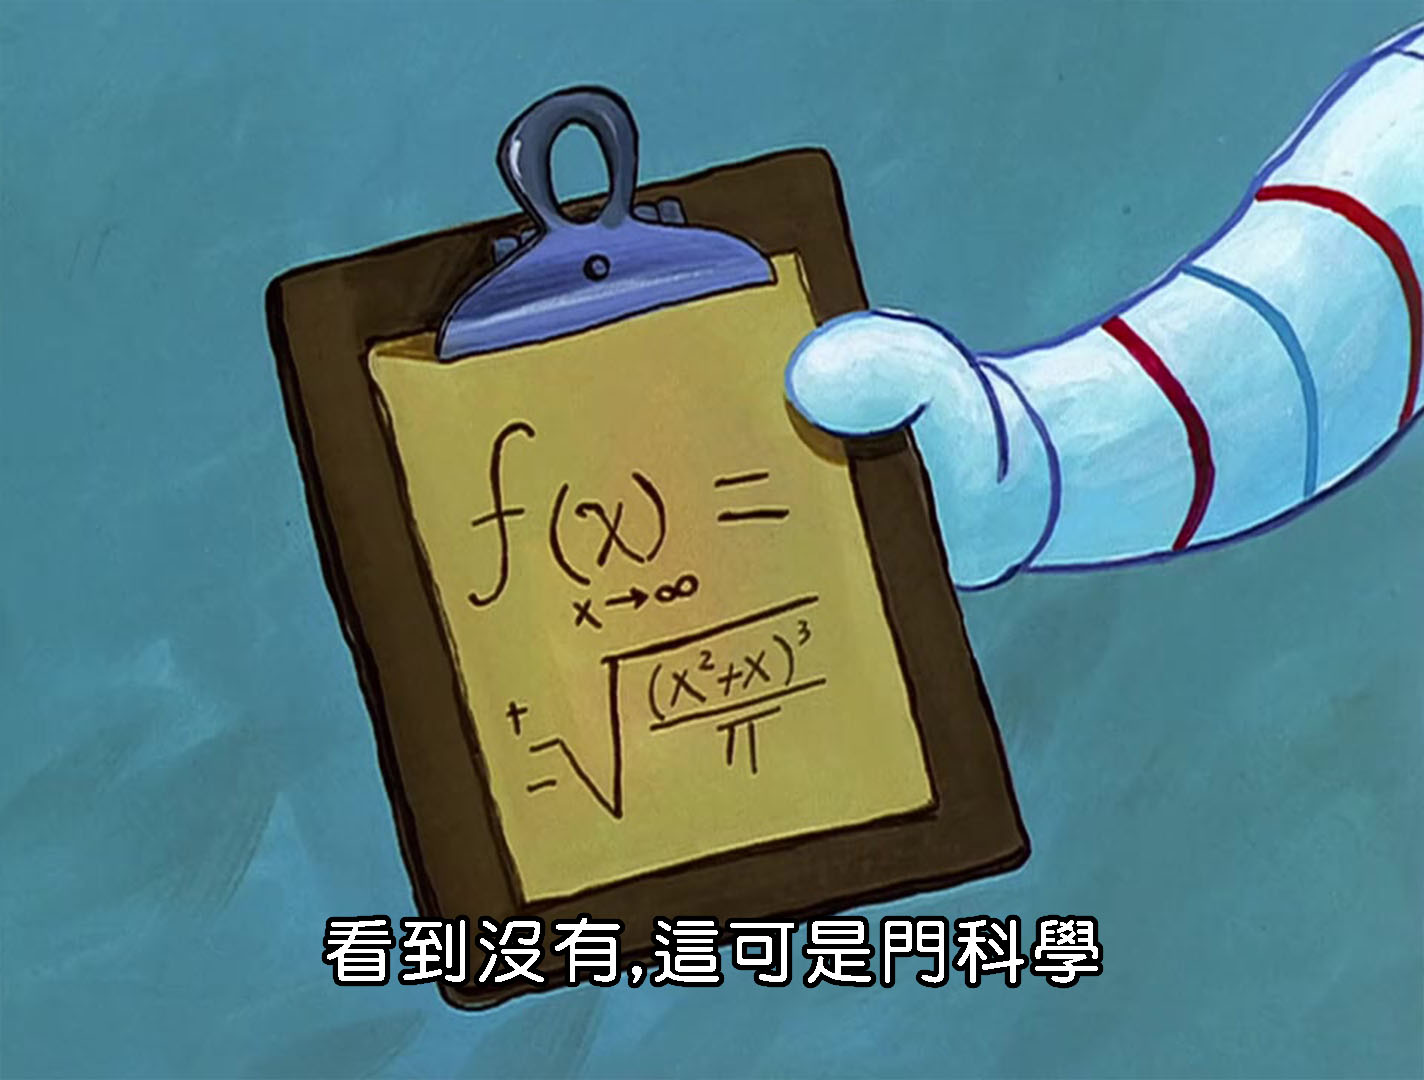 f(x) =
x→∞
±√((x²+x)³/π)
看到沒有,這可是門科學